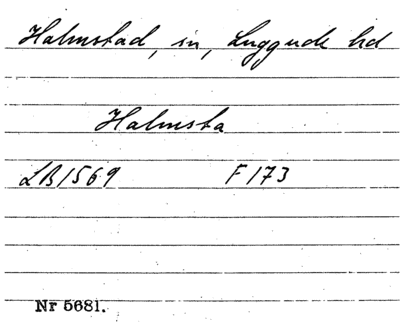 Halmstad, sn, Luggude hd
Halmsta
LB1569 F173
Nr 5681.